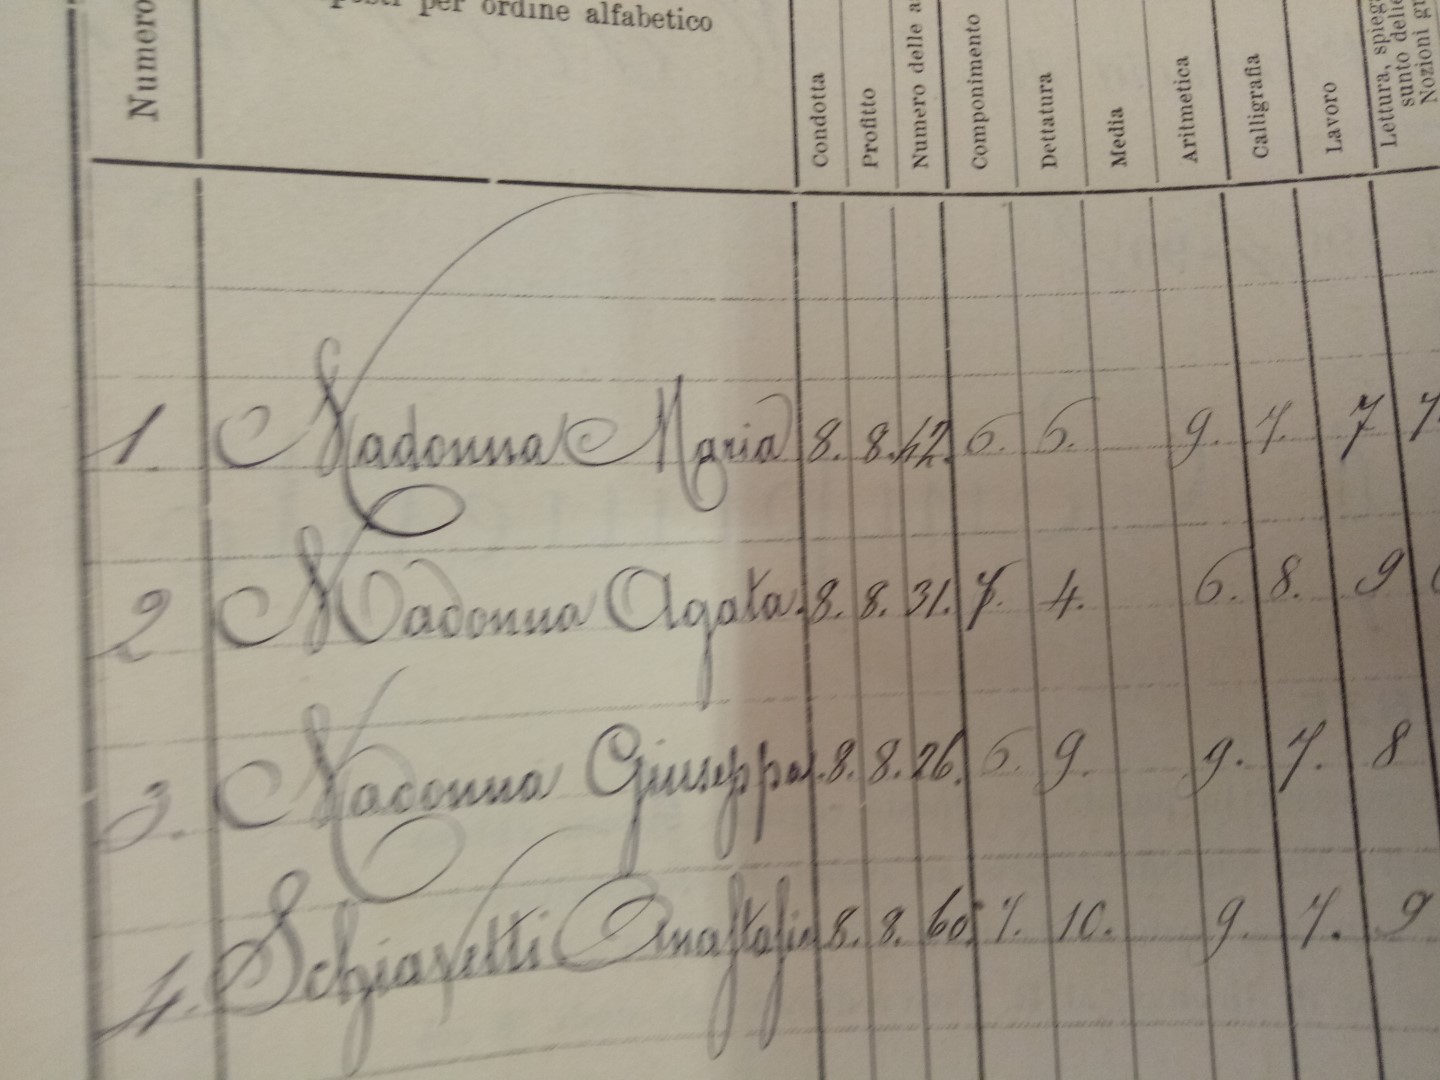 Numero
per ordine alfabetico
Condotta
Profitto
Numero delle a
Componimento
Dettatura
Media
Aritmetica
Calligrafia
Lavoro
Lettura, spieg
sunto delle
Nozioni gr
1. Madonna Maria 8. 8. 42. 6. 6. 9. 7. 7 7.
2 Madonna Agata. 8. 8. 31. 7. 4. 6. 8. 9
3. Madonna Giuseppa. 8. 8. 26. 6. 9. 9. 7. 8
4. Schiavetti 8. 8. 60. 7. 10. 9. 7. 9